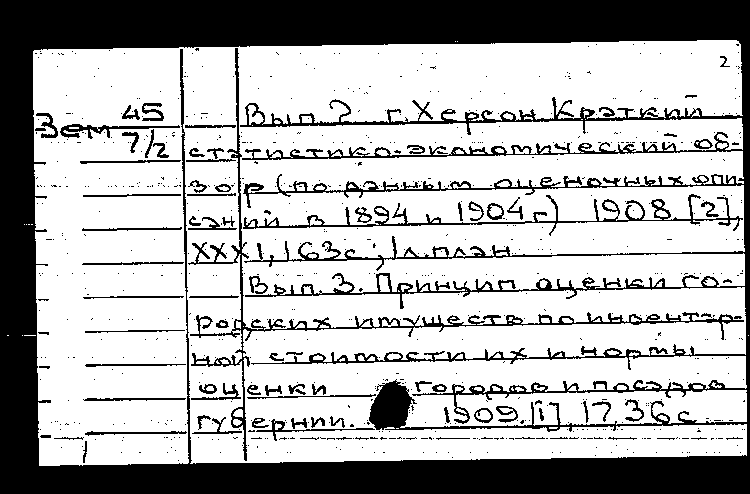 2
Зем 45
7/2
Вып 2 г. Херсон Краткий
статистико-экономический об-
зор (по данным оценочных опи-
саний в 1894 и 1904 г) 1908. [2],
XXXI, 163с; 1л. план
Вып. 3. Принцип оценки го-
родских имуществ по инвентар-
ной стоимости их и нормы
оценки городов и посадов
губернии. 1909. [1], 17, 36 с